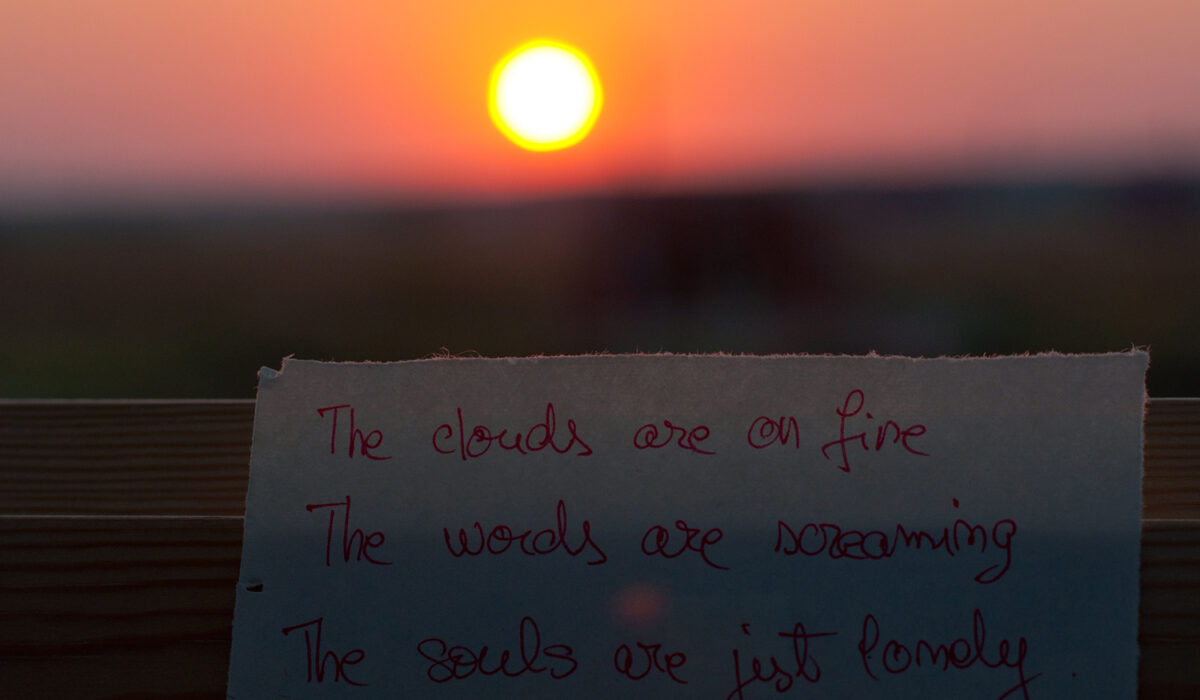 The clouds are on fire
The words are screaming
The souls are just lonely.